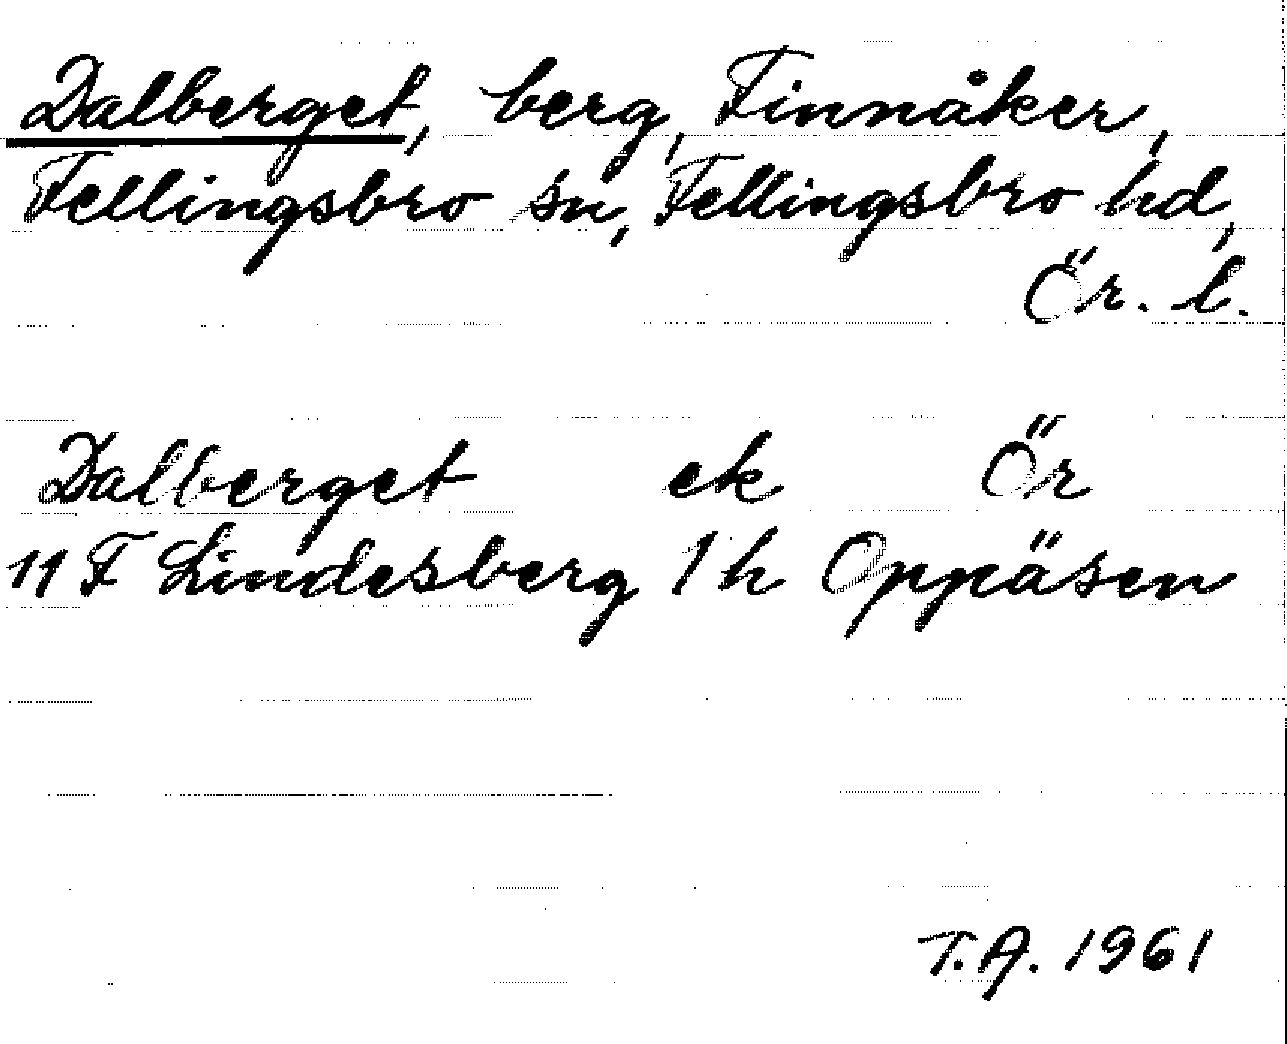 Dalberget, berg, Finnåker,
Fellingsbro sn, Fellingsbro hd,
Ör. l.
Dalberget ek Ör
11 F Lindesberg 1 h Oppäsen
T.A. 1961